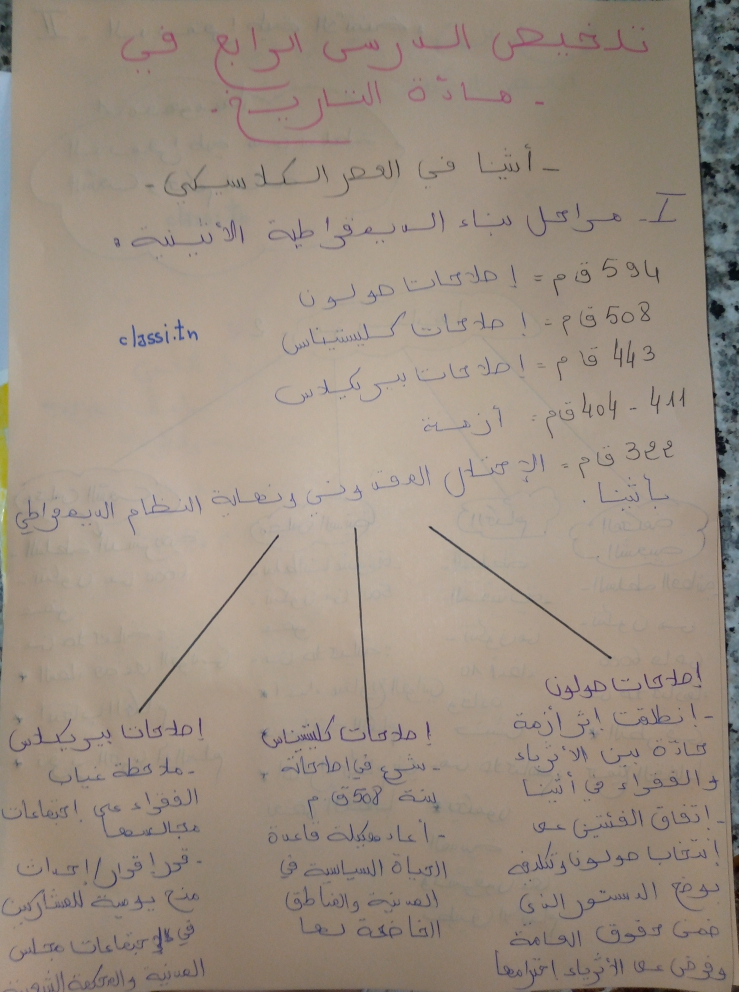 تلخيص الدرس الرابع في
- مادة التاريخ -
- أثينا في العصر الكلاسيكي -
I - مراحل بناء الديمقراطية الأثينية :
594 ق م = إصلاحات صولون
508 ق م = إصلاحات كليستيناس
classi.tn
443 ق م = إصلاحات بيريكلاس
411 - 404 ق م = أزمة
322 ق م = الإحتلال المقدوني ونهاية النظام الديمقراطي
بأثينا .
إصلاحات صولون
- انطلقت اثر أزمة
حادة بين الأثرياء
والفقراء في أثينا
- إتفاق الفئتين على
إنتخاب صولون وتكليفه
بوضع الدستور الذي
ضمن حقوق العامة
وفرض على الأثرياء احترامها
إصلاحات كليستيناس
- شرع في إصلاحاته
سنة 508 ق م
- أعاد هيكلة قاعدة
الحياة السياسية في
المدينة والمناطق
الخاضعة لها
إصلاحات بيريكلاس
- ملاحظة غياب
الفقراء على إجتماعات
مجالسها
- قرر إقرار / إحداث
منح يومية للمشاركين
في إجتماعات مجلس
المدينة والمحكمة الشعبية